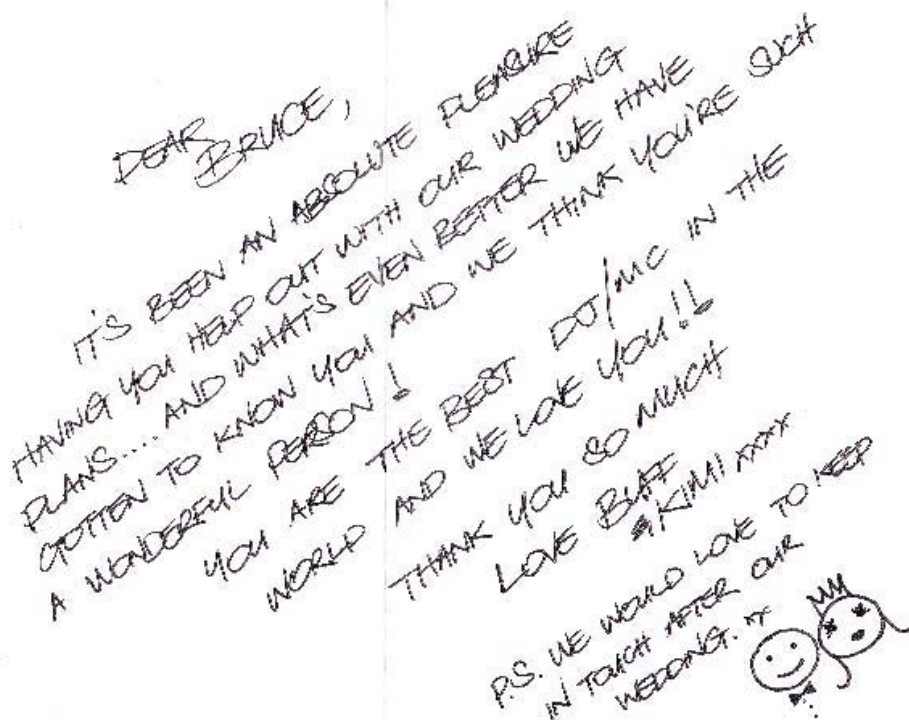 DEAR
BRUCE,
IT'S BEEN AN ABSOLUTE PLEASURE
HAVING YOU HELP OUT WITH OUR WEDDING
PLANS.... AND WHAT'S EVEN BETTER WE HAVE
GOTTEN TO KNOW YOU AND WE THINK YOU'RE SUCH
A WONDERFUL PERSON!
YOU ARE THE BEST DJ/MC IN THE
WORLD AND WE LOVE YOU!!
THANK YOU SO MUCH
LOVE BUFF
& KIMI xxxx
P.S. WE WOULD LOVE TO KEEP
IN TOUCH AFTER OUR
WEDDING. xx